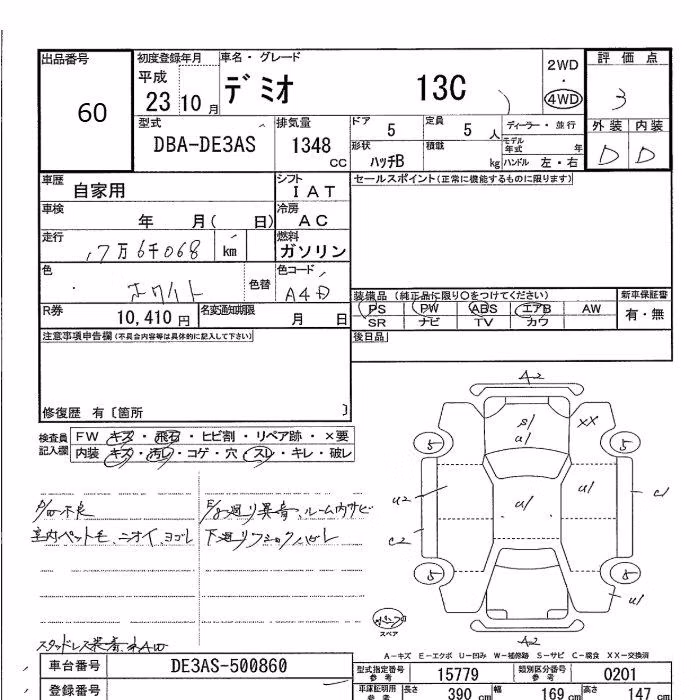 出品番号
60
初度登録年月
平成
23 10 月
車名・グレード
デミオ 13C
2WD
・
4WD
評価点
3
外装 内装
D D
型式
DBA-DE3AS
排気量
1348
CC
ドア
5
定員
5 人
ディーラー・並行
モデル
年式 年
形状
ハッチB
積載
kg
ハンドル 左・右
車歴
自家用
シフト
IAT
セールスポイント(正常に機能するものに限ります)
車検
年 月( 日)
冷房
AC
走行
17万6千068 km
燃料
ガソリン
色
ホワイト
色替
色コード
A4D
装備品 (純正品に限り○をつけてください)
PS PW ABS エアB AW
SR ナビ TV カワ
新車保証書
有・無
R券
10,410 円
名変通知期限
月 日
後日品
注意事項申告欄(不具合内容等は具体的に記入して下さい)
修復歴 有〔箇所 〕
検査員
記入欄
FW キズ・飛石・ヒビ割・リペア跡・×要
内装 キズ・汚れ・コゲ・穴・スレ・キレ・破レ
P/W不良
室内ペット毛、ニオイ、ヨゴレ
E/g廻り異音、ルーム内サビ
下廻りフェンダーハガレ
A2
S/
U/
XX
5
5
U2
U/
U/
C1
C2
5
5
U/
スペア
A2
A-キズ E-エクボ U-凹み W-補修跡 S-サビ C-腐食 XX-交換済
車台番号
DE3AS-500860
登録番号
型式指定番号
参考
15779
類別区分番号
参考
0201
車庫証明用
参考
長さ
390 cm
幅
169 cm
高さ
147 cm